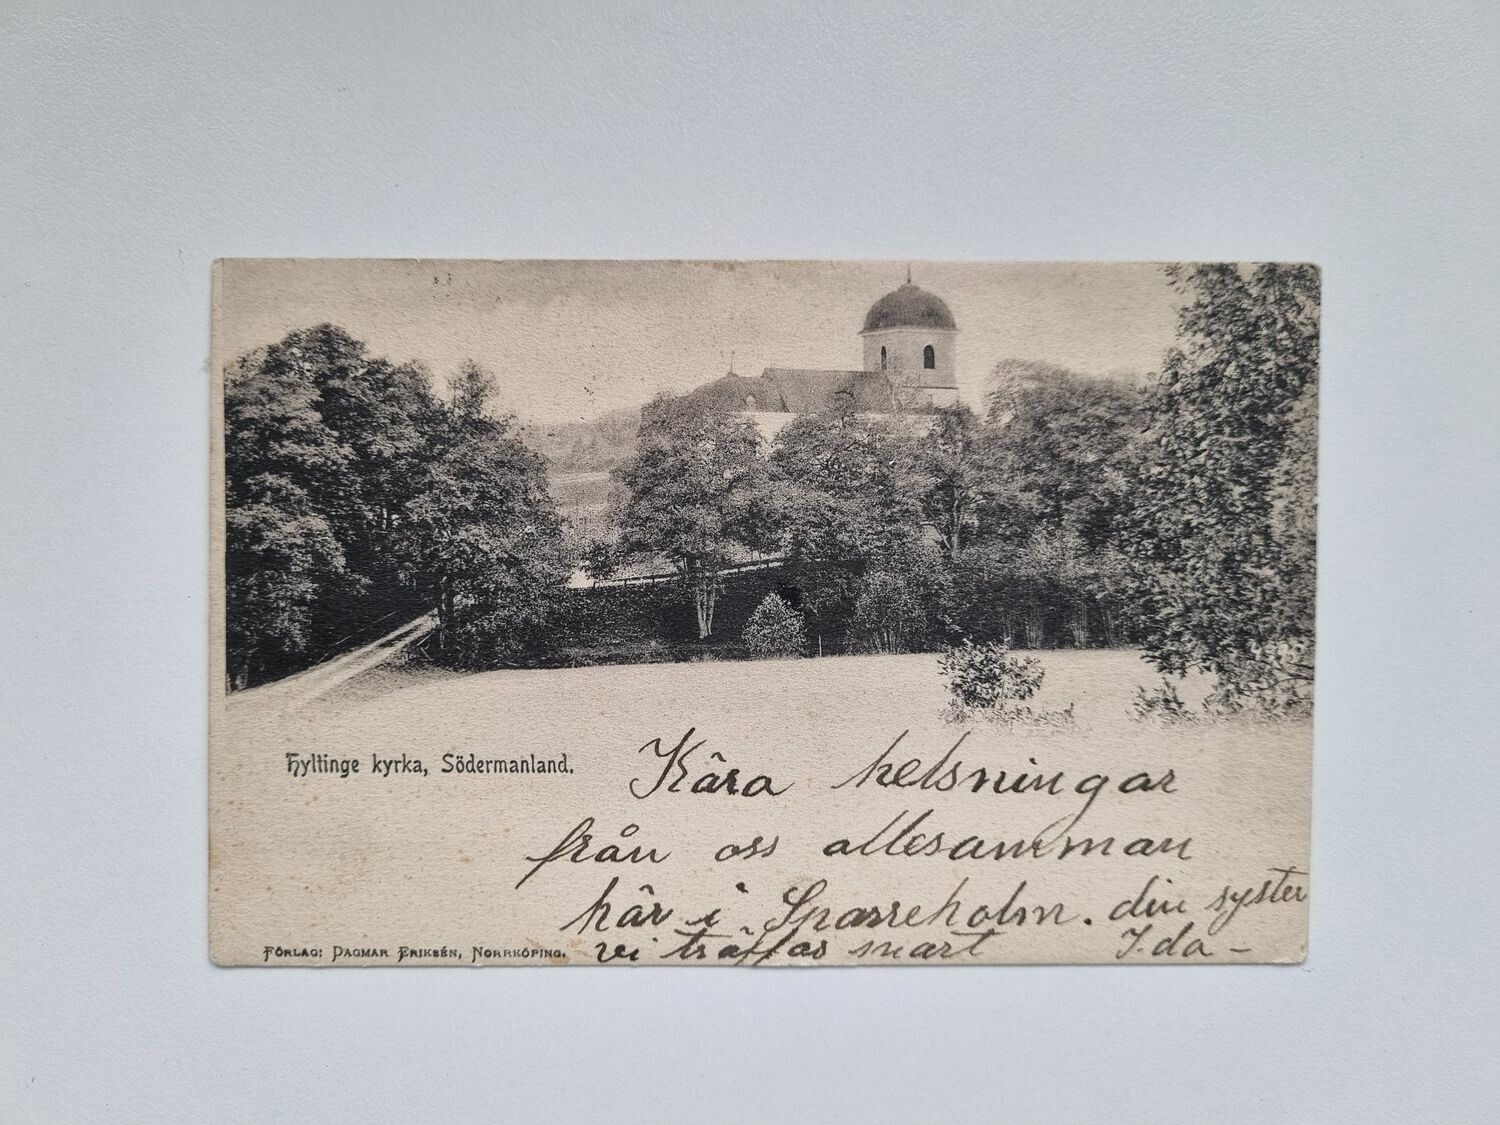 Hyltinge kyrka, Södermanland.
Kära helsningar
från oss allesamman
här i Sparreholm. din syster
vi träffas snart Ida –
FÖRLAG: DAGMAR ERIKSÉN, NORRKÖPING.